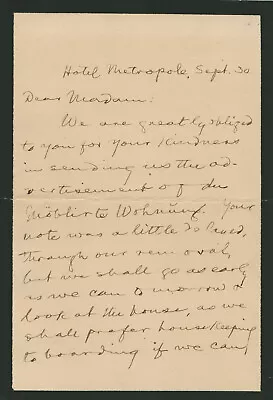 Hotel Metropole, Sept. 30
Dear Madam:
We are greatly oblized
to you for your kindness
in sending us the ad-
vertisement of du
Möblirte Wohnung. Your
note was a little delayed,
through our removal,
but we shall go as early
as we can to-morrow &
look at the house, as we
shall prefer housekeeping
to boarding if we can,